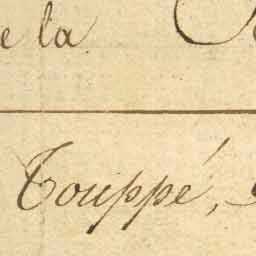 e la
Touppé,